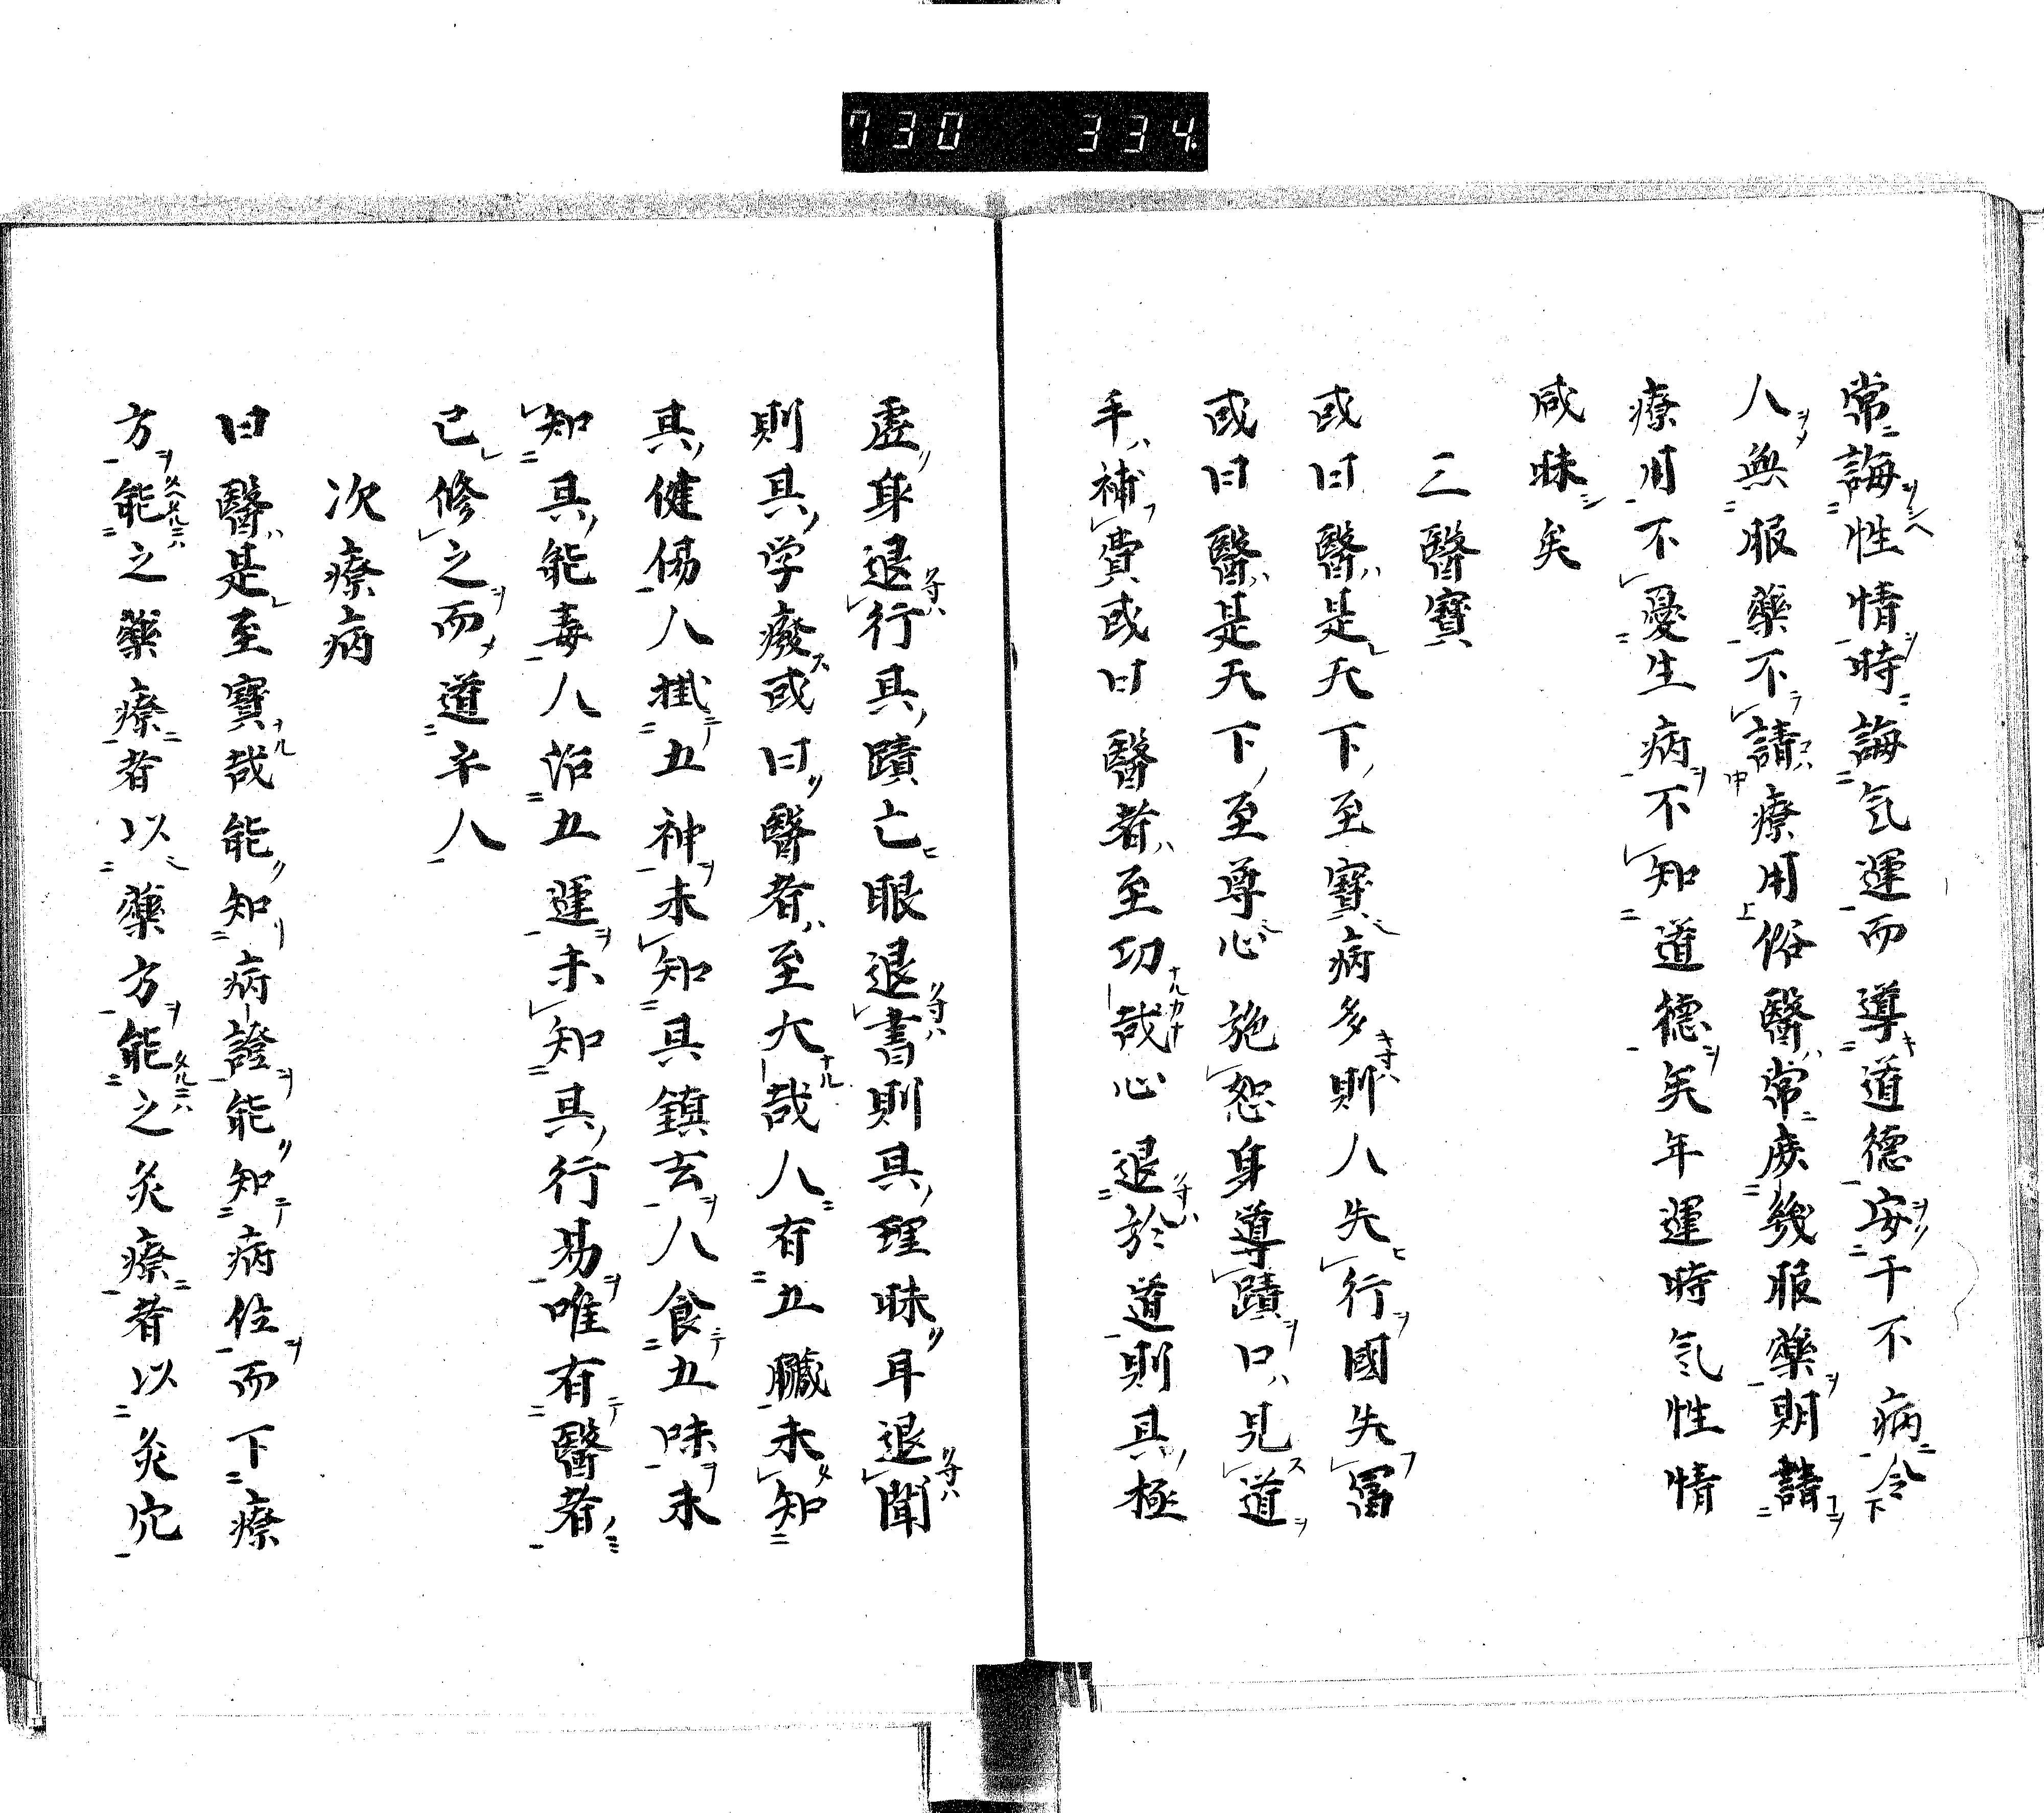 730 334
常誨性情時誨気運而導道德安于不病令
人無服藥不請療用俗醫常庶幾服藥期請
療用不憂生病不知道德矣年運時気性情
咸昧矣
二醫寶
或曰醫是天下至寶病多則人失行國失冨
或曰醫是天下至尊心施恕身導蹟口見道
手補費或曰醫者至功哉心退於道則具極
虚身退行具蹟亡眼退書則具理昧耳退聞
則具学癈或曰醫者至大哉人有五臓未知
具健傷人掛五神未知具鎮去人食五味未
知具能毒人治五運未知具行易唯有醫者
已修之而道平人
次療病
曰醫是至寶哉能知病證能知病位而下療
方能之藥療者以藥方能之灸療者以灸穴